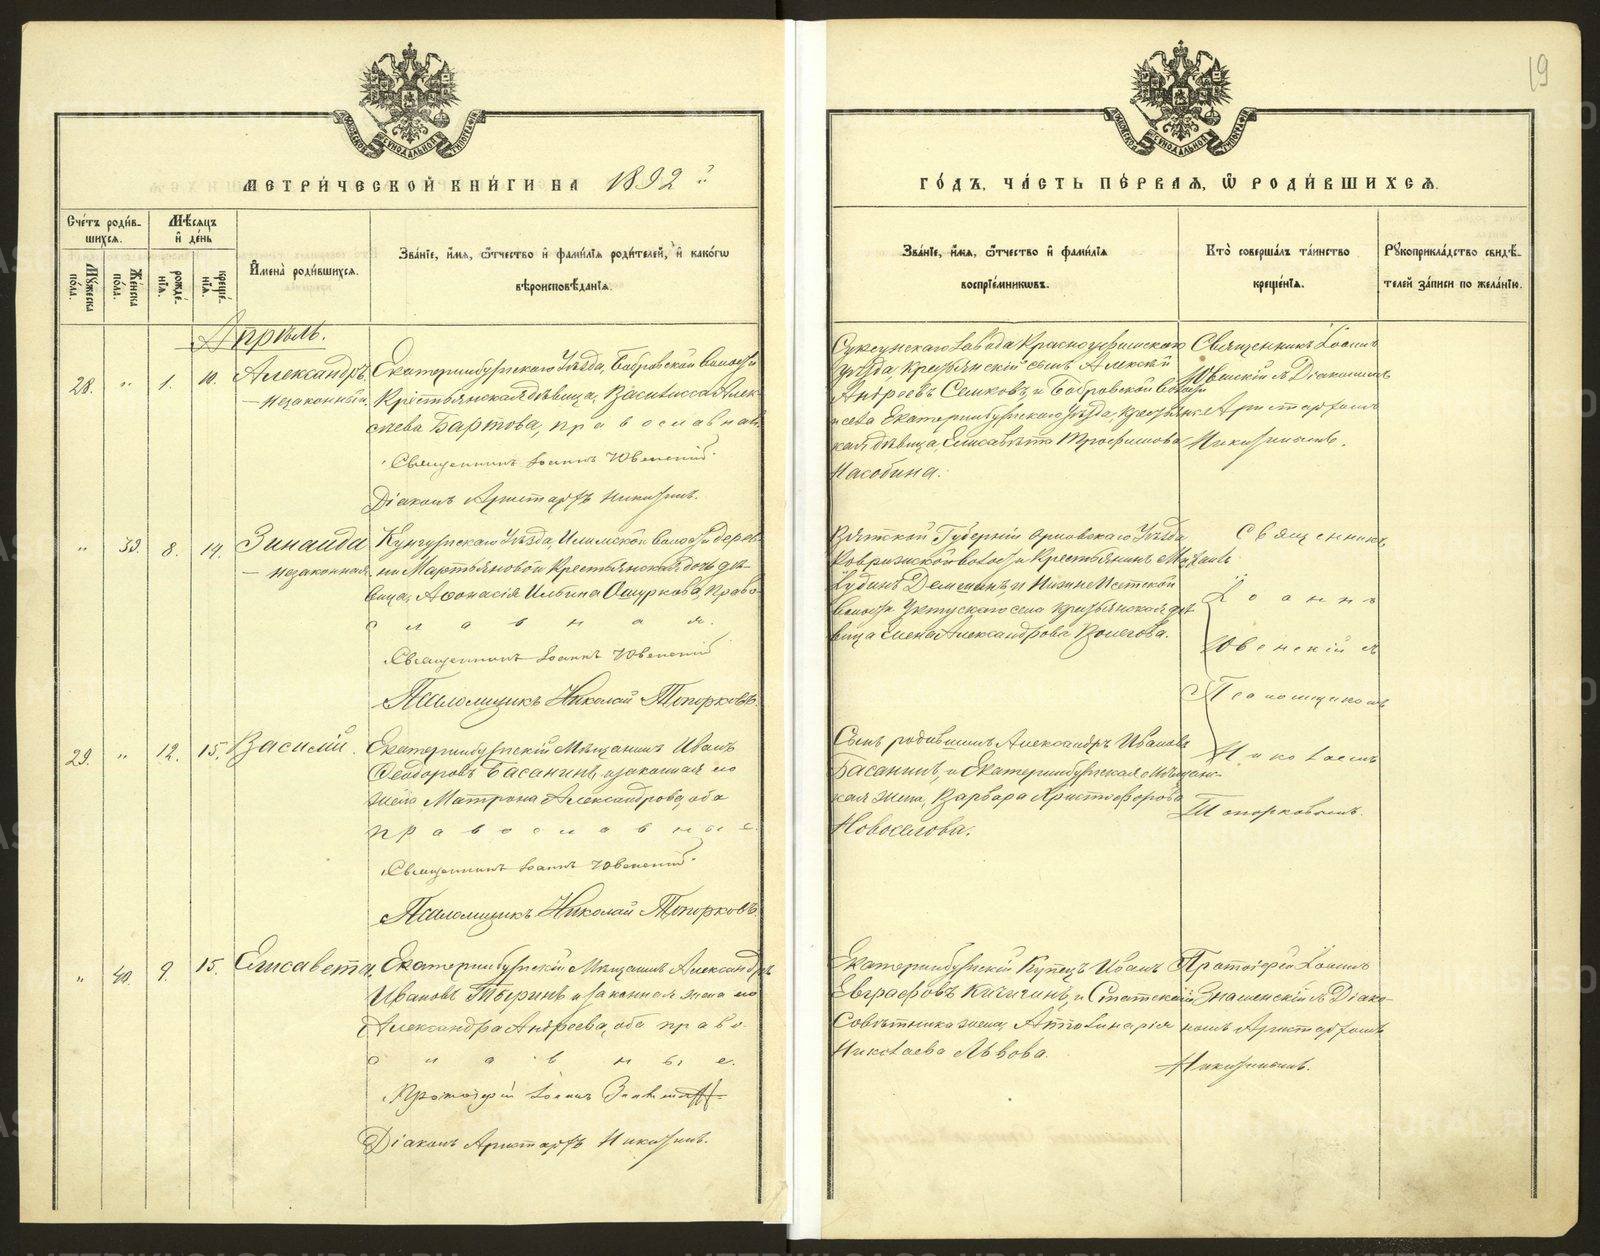 МЕТРИ́ЧЕСКОЙ КНИ́ГИ НА 1892 г.
Сче́тъ роди́в-
шихся.
Мѣ́сяцъ
и҆ де́нь
Мꙋ́жеска по́ла.
Же́нска по́ла.
рожде́-
нїя.
креще́-
нїя.
И҆мена̀ роди́вшихся.
Зва́нїе, и҆́мя, ѻ҆́тчество и҆ фами́лїя роди́телей, и҆ како́гѡ
вѣроисповѣ́данїя.
Апрѣль.
28. " 1. 10. Александръ
незаконный.
Екатеринбургскаго Уѣзда, Бобровской волости
Крестьянская дѣвица, Василисса Алек-
сѣева Бартова, православная.
Священникъ Іоаннъ Ювенскій.
Діаконъ Аристархъ Никитинъ.
" 39. 8. 14. Зинаида
незаконная.
Кунгурскаго Уѣзда, Илимской волости дерев-
ни Мартьяновой Крестьянская дочь дѣ-
вица, Аѳанасія Ильина Ошуркова, право-
славная.
Священникъ Іоаннъ Ювенскій
Псаломщикъ Николай Топорковъ.
29. " 12. 15. Василій.
Екатеринбургскій Мѣщанинъ Иванъ
Ѳеодоровъ Басанинъ, и законная его
жена Матрона Александрова, оба
православные.
Священникъ Іоаннъ Ювенскій.
Псаломщикъ Николай Топорковъ.
" 40. 9. 15. Елисавета.
Екатеринбургскій Мѣщанинъ Александръ
Ивановъ и законная жена его
Александра Андреева, оба право-
славные.
Протоіерей Іоаннъ
Діаконъ Аристархъ Никитинъ.
19
ГО́ДЪ, ЧА́СТЬ ПЕ́РВАЯ, Ѿ РОДИ́ВШИХСЯ.
Зва́нїе, и҆́мя, ѻ҆́тчество и҆ фами́лїя
воспрїе́мникѡвъ.
Кто̀ соверша́лъ та́инство
креще́нїя.
Рꙋкоприкла́дство свидѣ́-
телей за́писи по жела́нїю.
Суксунскаго завода Красноуфимскаго
уѣзда, Крестьянскій сынъ Алексѣй
Андреевъ Семковъ, и Бобровской воло-
сти Екатеринбургскаго Уѣзда, крестьянс-
кая дѣвица, Елисавета Трофимова
Насобина.
Священникъ Іоаннъ
Ювенскій съ Діакономъ
Аристархомъ
Никитинымъ.
Вятской Губерніи Орловскаго Уѣзда,
волости Крестьянинъ Михаилъ
и Нижне-Исетской
волости Уктусскаго села крестьянская дѣ-
вица Елена Александрова
Священникъ
Іоаннъ
Ювенскій съ
Псаломщикомъ
Николаемъ
Топорковымъ.
Сынъ родившихъ Александръ Ивановъ
Басанинъ, и Екатеринбургская мѣщанс-
кая жена, Варвара Христофорова
Новоселова.
Екатеринбургскій Купецъ Иванъ
Евграфовъ Кичигинъ, и Статскаго
Совѣтника жена, Апполинарія
Николаева Львова.
Протоіерей Іоаннъ
Знаменскій съ Діако-
номъ Аристархомъ
Никитинымъ.